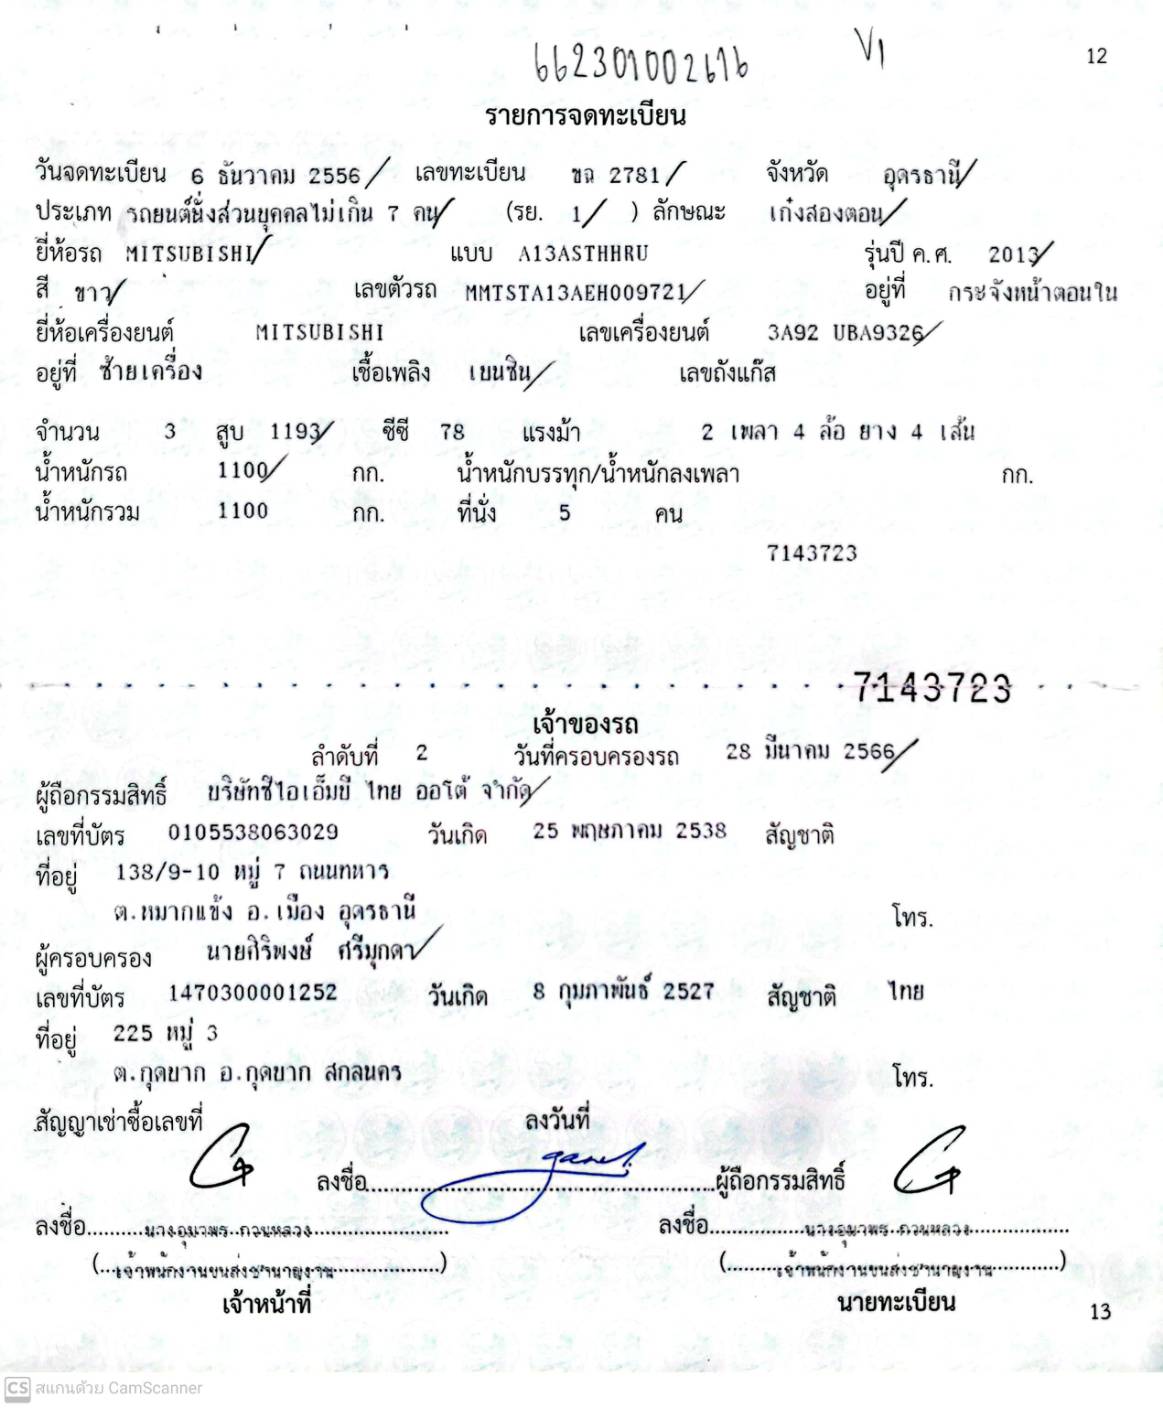 662301002616
V1
12
รายการจดทะเบียน
วันจดทะเบียน 6 ธันวาคม 2556 / เลขทะเบียน ขฉ 2781 / จังหวัด อุดรธานี /
ประเภท รถยนต์นั่งส่วนบุคคลไม่เกิน 7 คน / (รย. 1 / ) ลักษณะ เก๋งสองตอน /
ยี่ห้อรถ MITSUBISHI / แบบ A13ASTHHRU รุ่นปี ค.ศ. 2013 /
สี ขาว / เลขตัวรถ MMTSTA13AEH009721 / อยู่ที่ กระจังหน้าตอนใน
ยี่ห้อเครื่องยนต์ MITSUBISHI เลขเครื่องยนต์ 3A92 UBA9326 /
อยู่ที่ ซ้ายเครื่อง เชื้อเพลิง เบนซิน / เลขถังแก๊ส
จำนวน 3 สูบ 1193 / ซีซี 78 แรงม้า 2 เพลา 4 ล้อ ยาง 4 เส้น
น้ำหนักรถ 1100 / กก. น้ำหนักบรรทุก/น้ำหนักลงเพลา กก.
น้ำหนักรวม 1100 กก. ที่นั่ง 5 คน
7143723
7143723
เจ้าของรถ
ลำดับที่ 2 วันที่ครอบครองรถ 28 มีนาคม 2566 /
ผู้ถือกรรมสิทธิ์ บริษัทซีไอเอ็มบี ไทย ออโต้ จำกัด /
เลขที่บัตร 0105538063029 วันเกิด 25 พฤษภาคม 2538 สัญชาติ
ที่อยู่ 138/9-10 หมู่ 7 ถนนทหาร
ต.หมากแข้ง อ.เมือง อุดรธานี โทร.
ผู้ครอบครอง นายศิริพงษ์ ศรีมุกดา /
เลขที่บัตร 1470300001252 วันเกิด 8 กุมภาพันธ์ 2527 สัญชาติ ไทย
ที่อยู่ 225 หมู่ 3
ต.กุดบาก อ.กุดบาก สกลนคร โทร.
สัญญาเช่าซื้อเลขที่ ลงวันที่
ลงชื่อ ผู้ถือกรรมสิทธิ์
ลงชื่อ นางอุมาพร กวนหลวง ลงชื่อ นางอุมาพร กวนหลวง
(เจ้าพนักงานขนส่งชำนาญงาน) (เจ้าพนักงานขนส่งชำนาญงาน)
เจ้าหน้าที่ นายทะเบียน
13
CS สแกนด้วย CamScanner